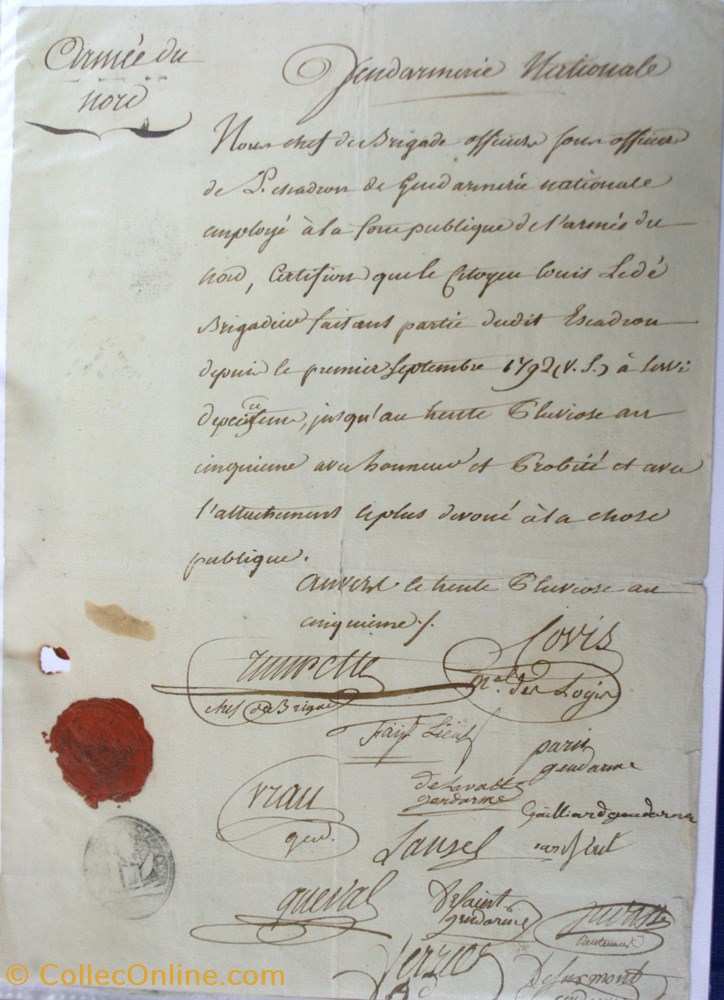 Armée du
nord
Gendarmerie Nationale
Nous chef de Brigade officiers sous officiers
de L'escadron de Gendarmerie nationale
employé à la force publique de l'armée du
nord, Certifion que le Citoyen Louis Ledé
Brigadier faisant partie dudit Escadron
depuis le premier Septembre 1792 (V. S.) à servi
jusqu'au trente Pluviose an
cinquieme avec honneur et Probité et avec
l'attachement le plus devoué à la chose
publique.
anvers le trente Pluviose an
cinquieme /.
Covis
chef de Brigade
mal des Logis
Lieut
paris
gendarme
vrau
gen.
delavall
gendarme
Gailliard gendarme
Lansel
queval
desaint
gendarme
lieutenant
desurmont
© CollecOnline.com